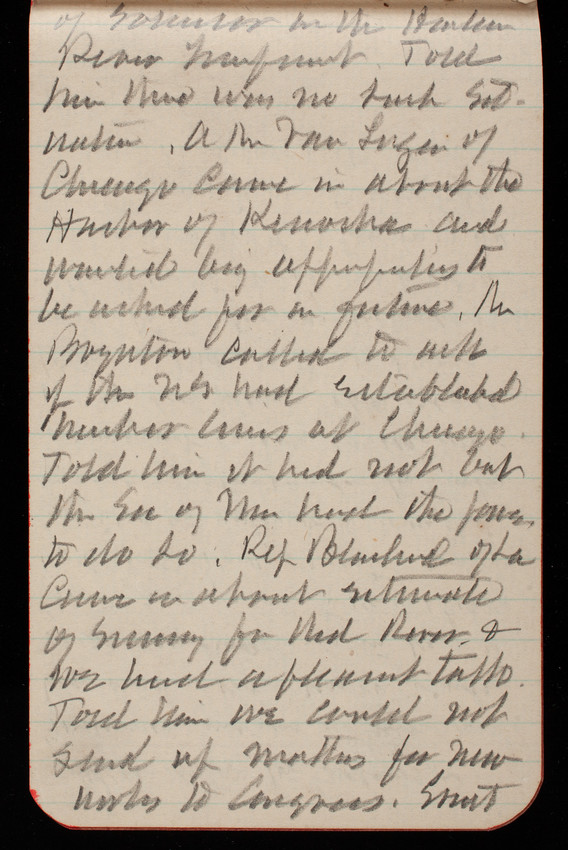 of in the Harlem
River . Told
him there was no such sit-
uation. A Mr Van of
Chicago came in about the
Harbor of Kenosha and
wanted big appropriations to
be asked for in future. Mr
Boynton called to ask
if the had established
harbor lines at Chicago.
Told him it had not but
the Sec of War had the power
to do so. Rep Blanchard of La
came in about estimate
of Survey for Red River &
we had a pleasant talk.
Told him we could not
send up matters for new
works to Congress.